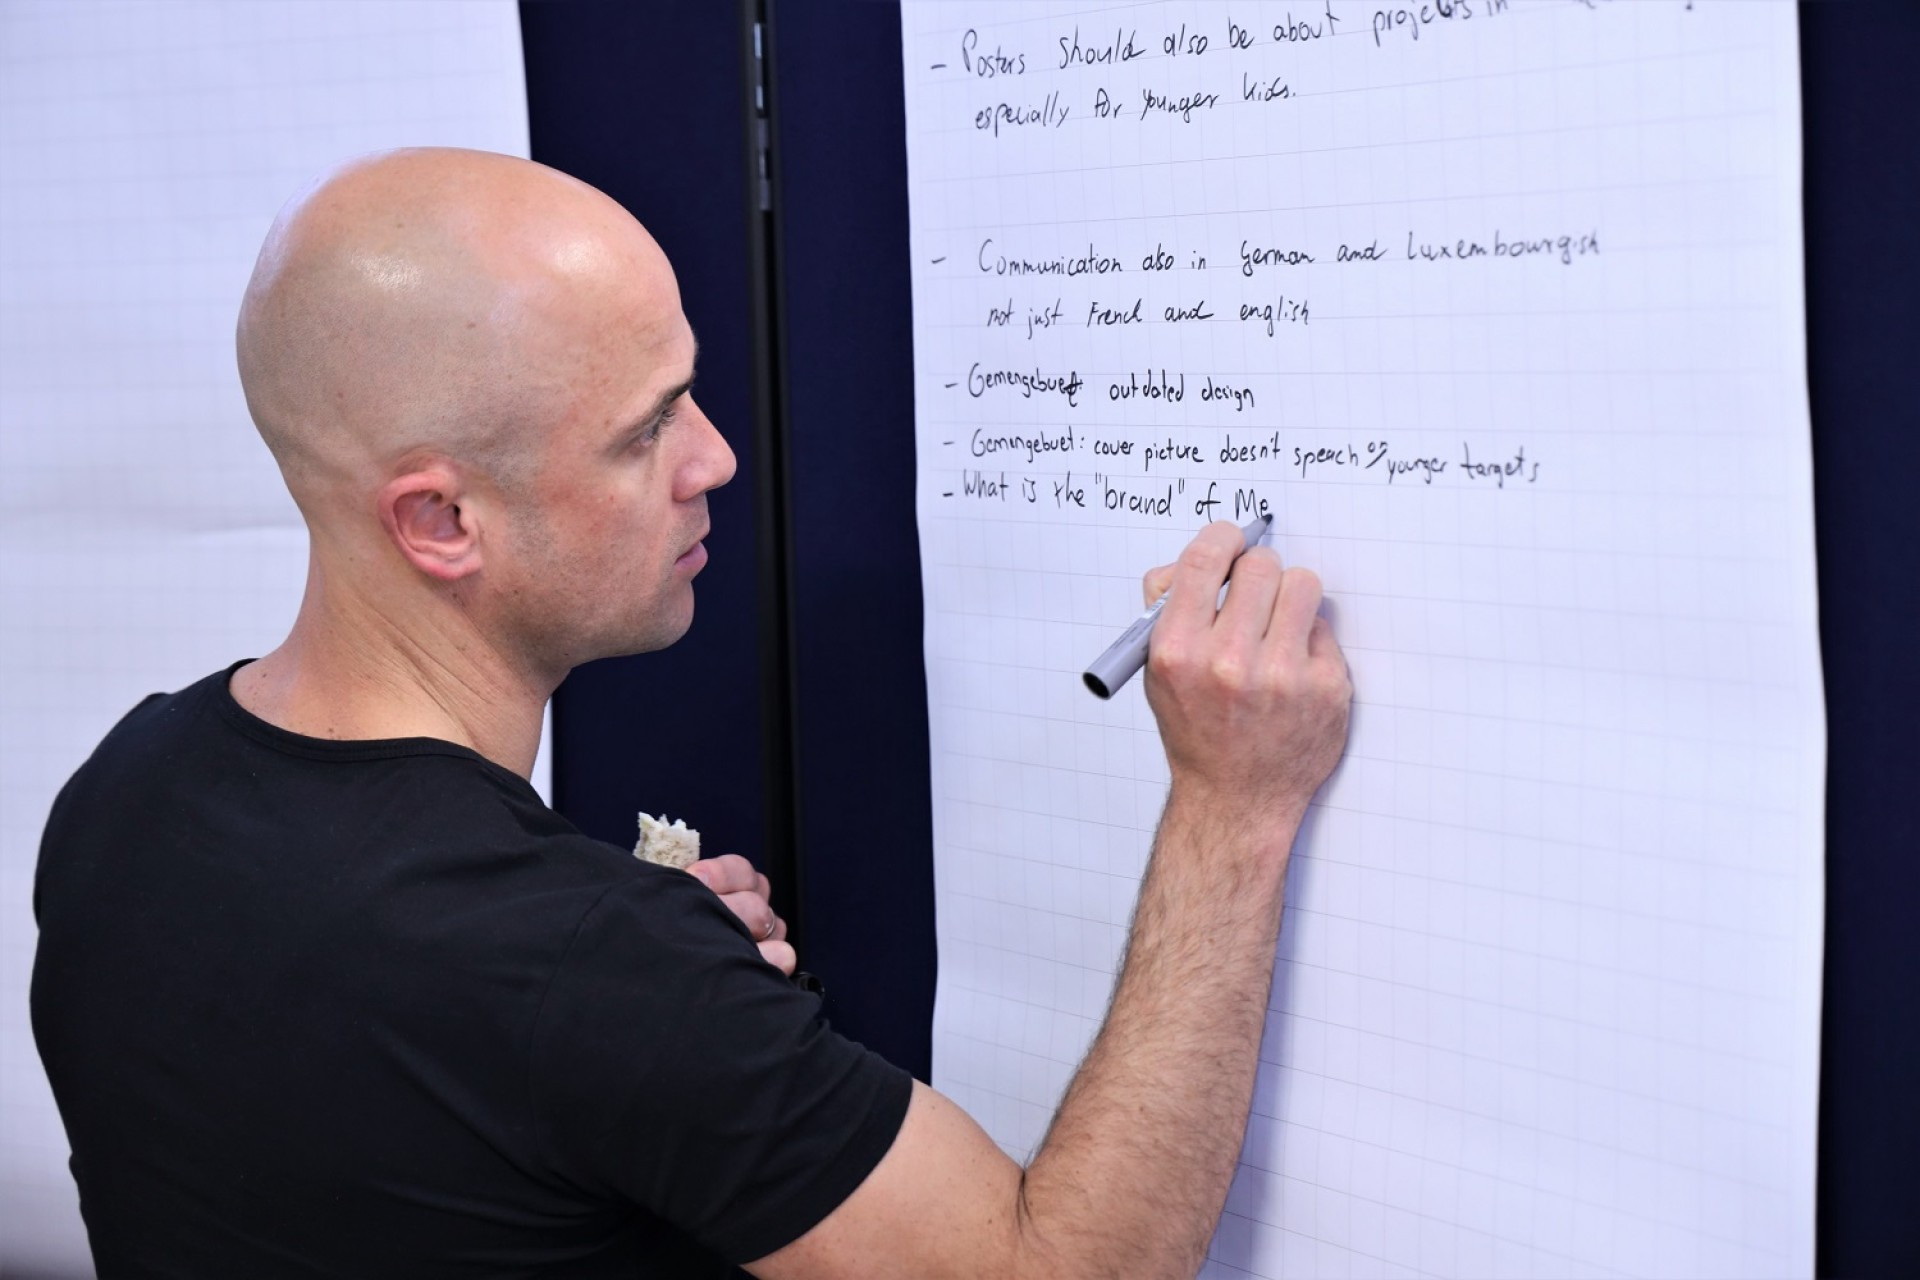 - Posters should also be about projects in
especially for younger kids.
- Communication also in German and Luxembourgish
not just French and english
- Gemengebuet outdated design
- Gemengebuet: cover picture doesn't speach of younger targets
- What is the "brand" of Me